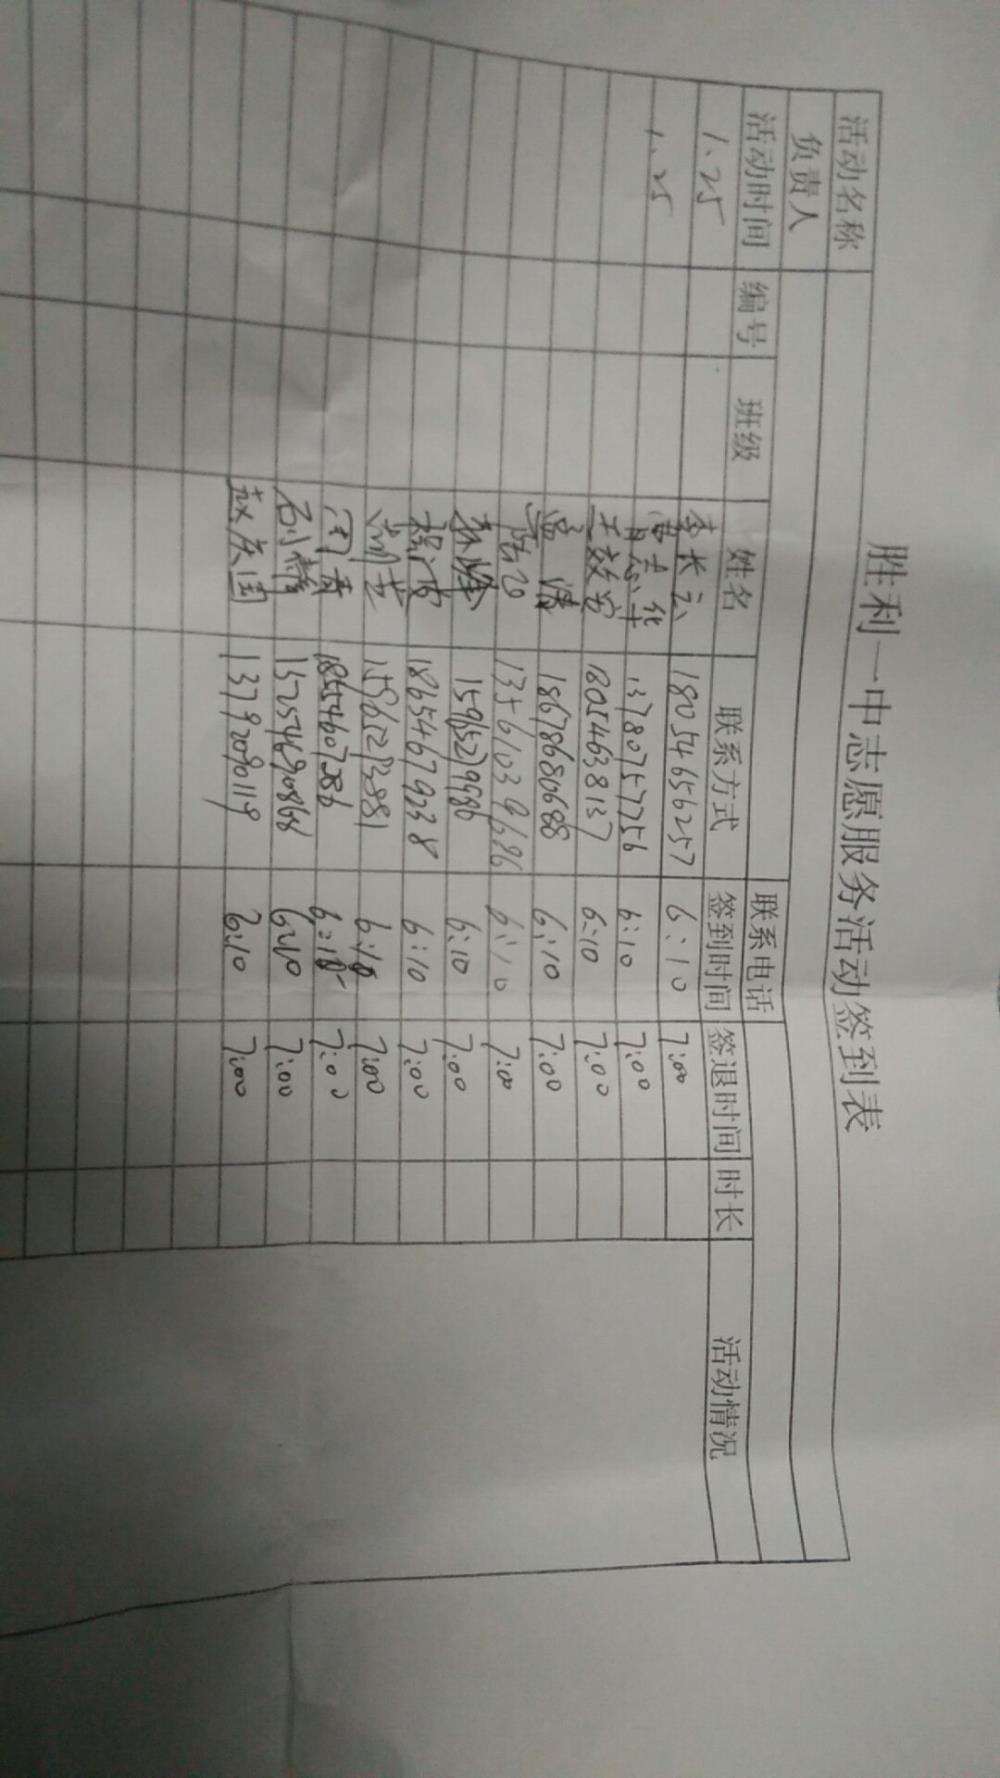 胜利一中志愿服务活动签到表
活动名称
负责人 联系电话
活动时间 编号 班级 姓名 联系方式 签到时间 签退时间 时长 活动情况
1.25 李长云 18054656257 6:10 7:00
1.25 曹志华 13780757756 6:10 7:00
王效芳 18054638137 6:10 7:00
孟 涛 18678680688 6:10 7:00
13561039686 6:10 7:00
孙峰 15965279986 6:10 7:00
程波 18654679238 6:10 7:00
7:00
周勇 18554607286 7:00
石小静 15725469086 6:10 7:00
赵庆国 13792090119 6:10 7:00